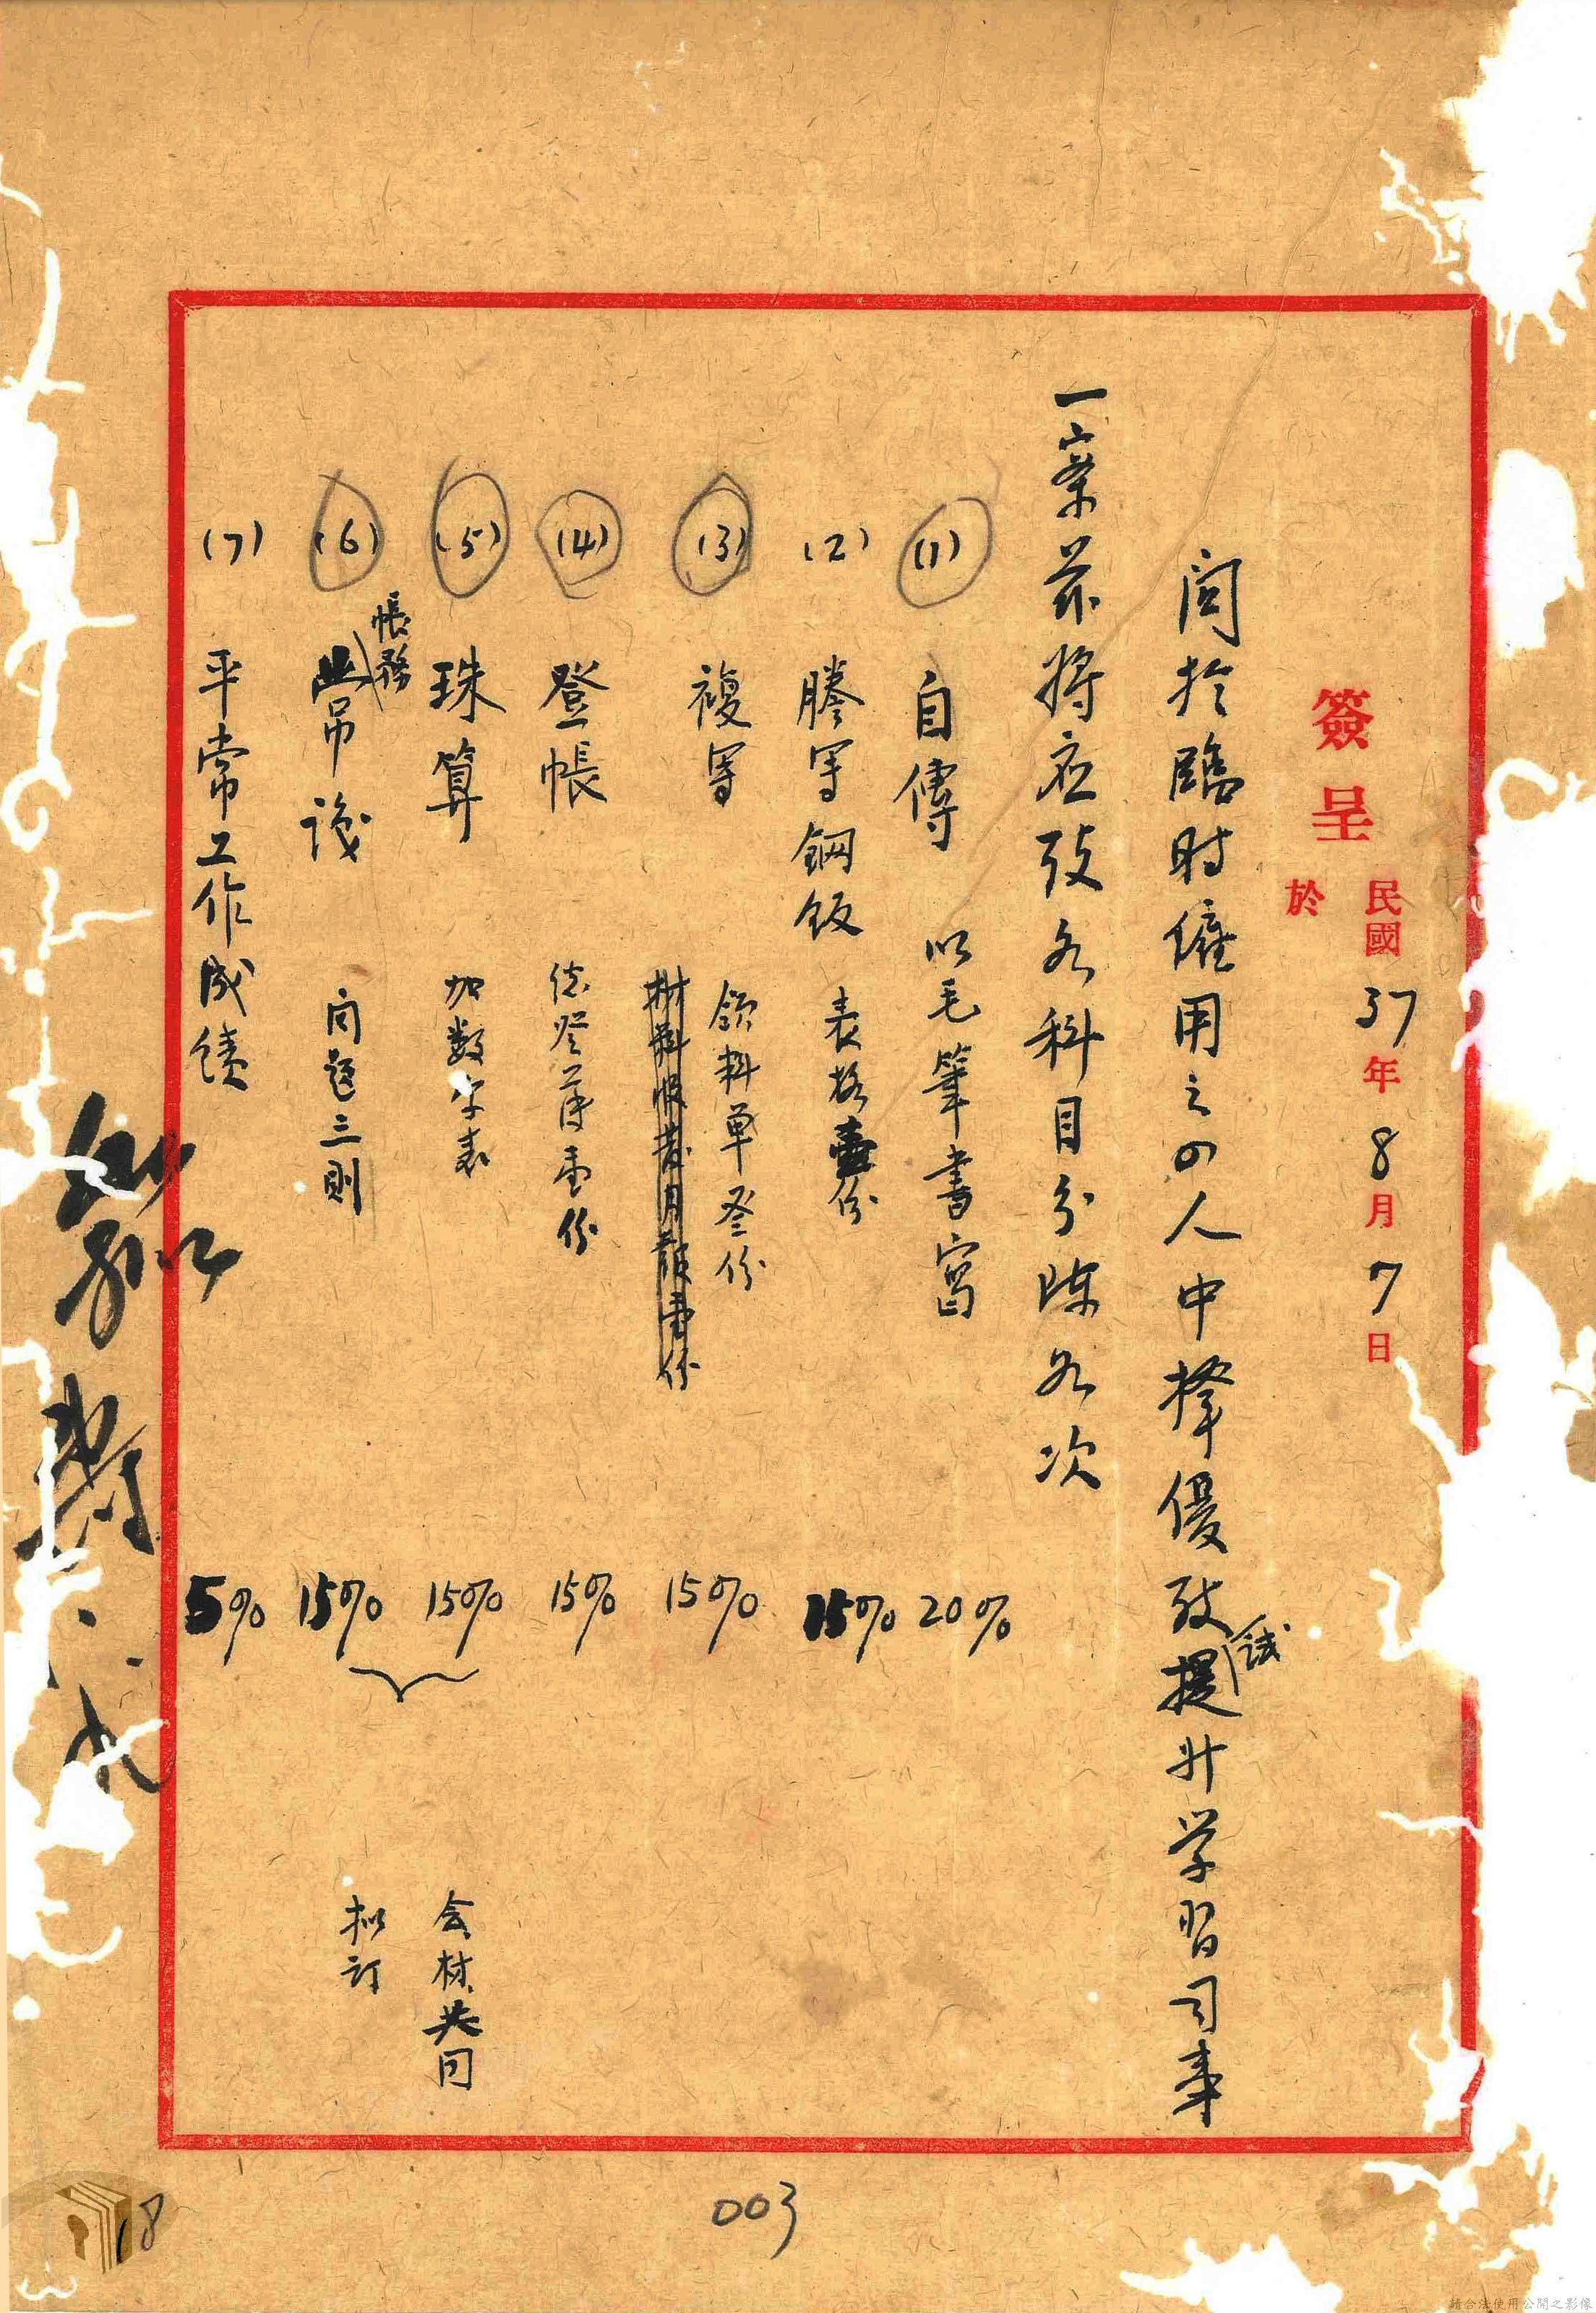 簽呈 民國37年8月7日
於
関於臨时僱用之四人中擇優攷試提升学習司事
一案茲將应攷各科目分陈如次
(1) 自傳 以毛筆書寫 20%
(2) 謄写鋼版 表格壹份 15%
(3) 複写 領料單叁份 15%
(4) 登帳 登薄壹份 15%
(5) 珠算 加数字表 15%
(6) 帳務常識 问题三則 15%
会材共同
拟订
(7) 平常工作成績 5%
003
18
請合法使用公開之影像